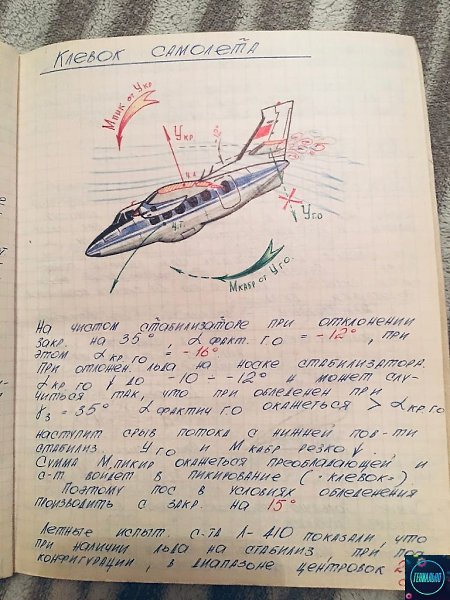 КЛЕВОК САМОЛЕТА
Mпик от Yкр
Yкр
Ц.Т.
Yг.о
Mкабр от Yг.о.
НА ЧИСТОМ СТАБИЛИЗАТОРЕ ПРИ ОТКЛОНЕНИИ
ЗАКР. НА 35°, α ФАКТ. ГО = -12°, ПРИ
ЭТОМ α КР. ГО = -16°
ПРИ ОТЛОЖЕН. ЛЬДА НА НОСКЕ СТАБИЛИЗАТОРА
α КР. ГО ↓ ДО -10 - -12° И МОЖЕТ СЛУ-
ЧИТЬСЯ ТАК, ЧТО ПРИ ОБЛЕДЕНЕН. ПРИ
= 35° α ФАКТИЧ ГО ОКАЖЕТЬСЯ > α КР. ГО
НАСТУПИТ СРЫВ ПОТОКА С НИЖНЕЙ ПОВ-ТИ
СТАБИЛИЗ YГО И M КАБР. РЕЗКО ↓.
СУММА M ПИКИР ОКАЖЕТЬСЯ ПРЕОБЛАДАЮЩЕЙ И
С-Т ВОЙДЕТ В ПИКИРОВАНИЕ („КЛЕВОК")
ПОЭТОМУ ПОС В УСЛОВИЯХ ОБЛЕДЕНЕНИЯ
ПРОИЗВОДИТЬ С ЗАКР. НА 15°
ЛЕТНЫЕ ИСПЫТ. С-ТА Л-410 ПОКАЗАЛИ, ЧТО
ПРИ НАЛИЧИИ ЛЬДА НА СТАБИЛИЗ, ПРИ ПОС
КОНФИГУРАЦИИ, В ДИАПАЗОНЕ ЦЕНТРОВОК
ГЕНИАЛЬНО